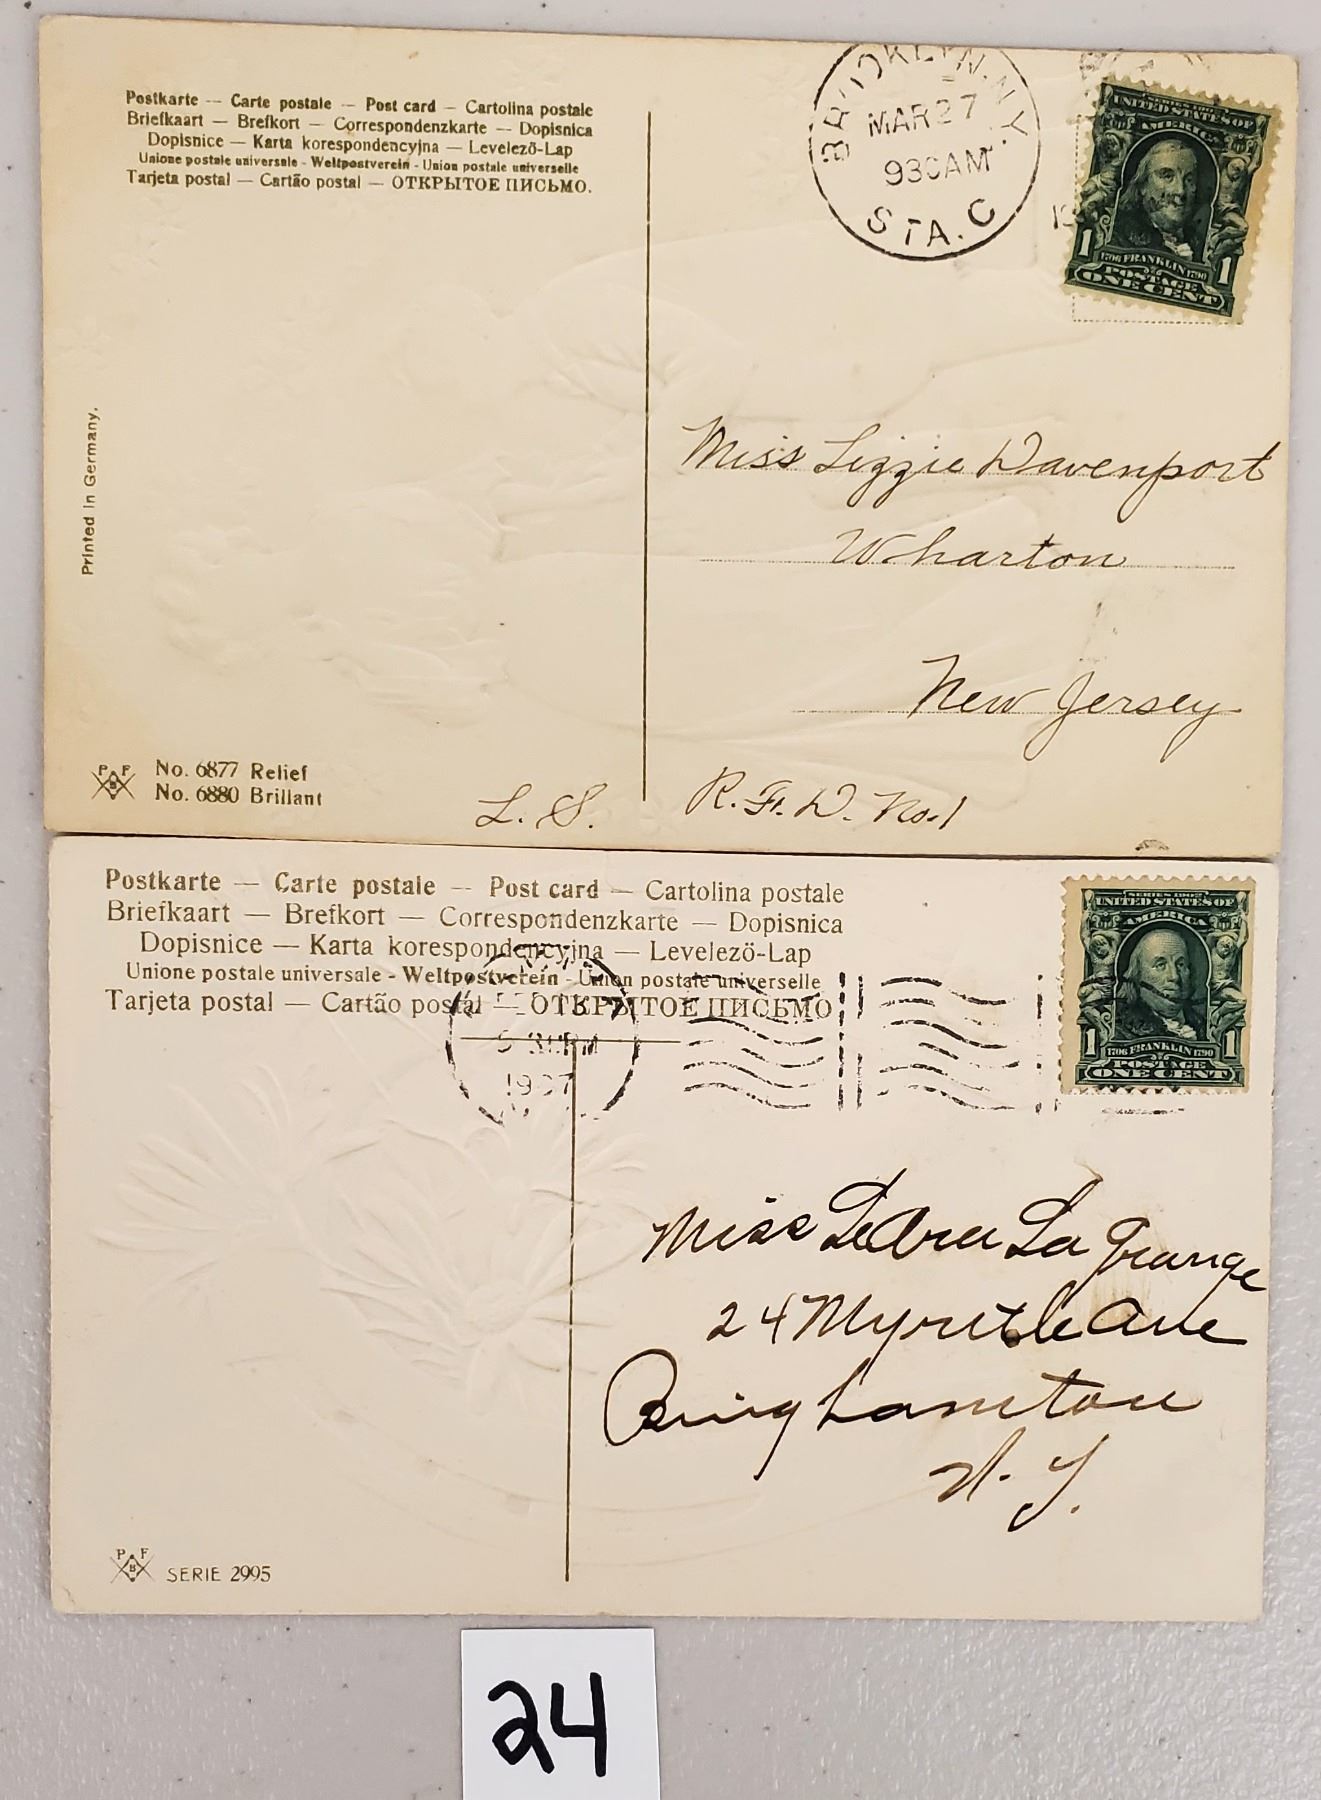 Postkarte — Carte postale — Post card — Cartolina postale
Briefkaart — Brefkort — Correspondenzkarte — Dopisnica
Dopisnice — Karta korespondencyjna — Levelező-Lap
Unione postale universale - Weltpostverein - Union postale universelle
Tarjeta postal — Cartão postal — ОТКРЫТОЕ ПИСЬМО.
BROOKLYN, N.Y.
MAR 27
930AM
STA. C
SERIES 1902
UNITED STATES OF
AMERICA
1 1
1706 FRANKLIN 1790
POSTAGE
ONE CENT
Miss Lizzie Davenport
Wharton
New Jersey
R. F. D. No. 1
L. S.
Printed in Germany.
P F
B
No. 6877 Relief
No. 6880 Brillant
Postkarte — Carte postale — Post card — Cartolina postale
Briefkaart — Brefkort — Correspondenzkarte — Dopisnica
Dopisnice — Karta korespondencyjna — Levelező-Lap
Unione postale universale - Weltpostverein - Union postale universelle
Tarjeta postal — Cartão postal — ОТКРЫТОЕ ПИСЬМО
1907
SERIES 1902
UNITED STATES OF
AMERICA
1 1
1706 FRANKLIN 1790
POSTAGE
ONE CENT
Miss La Grange
24 Myrtle Ave
Binghamton
N. Y.
P F
B
SERIE 2995
24